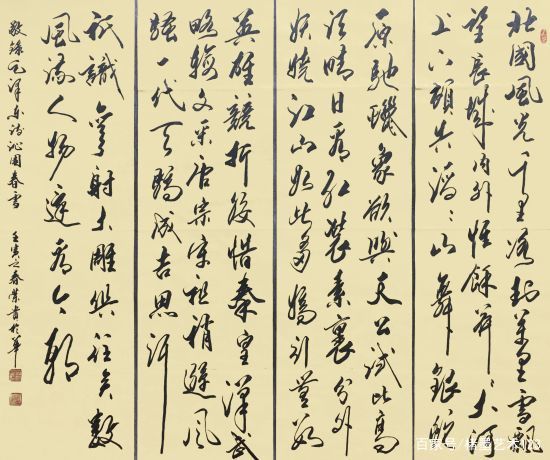 北國風光千里冰封萬里雪飄
望長城内外惟餘莽莽大河
上下頓失滔滔山舞銀蛇
原馳蠟象欲與天公試比高
須晴日看紅裝素裹分外
妖嬈江山如此多嬌引無數
英雄競折腰惜秦皇漢武
略輸文采唐宗宋祖稍遜風
騷一代天驕成吉思汗
祇識彎弓射大雕俱往矣數
風流人物還看今朝
敬錄毛澤東詩沁園春雪 壬寅之春榮書於
百家号/